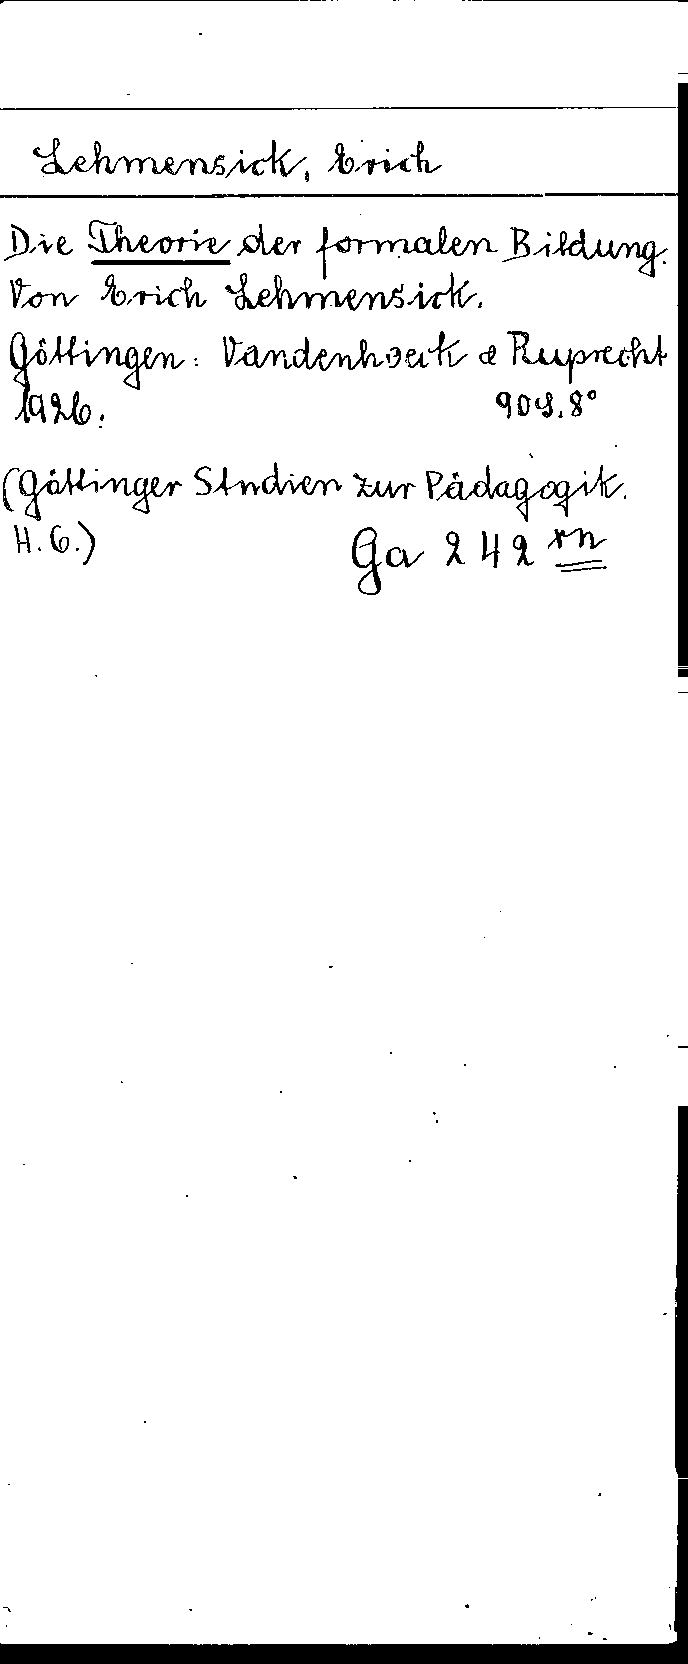 Lehmensick, Erich
Die Theorie der formalen Bildung.
Von Erich Lehmensick.
Göttingen: Vandenhoeck & Ruprecht
1926. 90 S. 8°
(Göttinger Studien zur Pädagogik.
H. 6.) Ga 242 xn